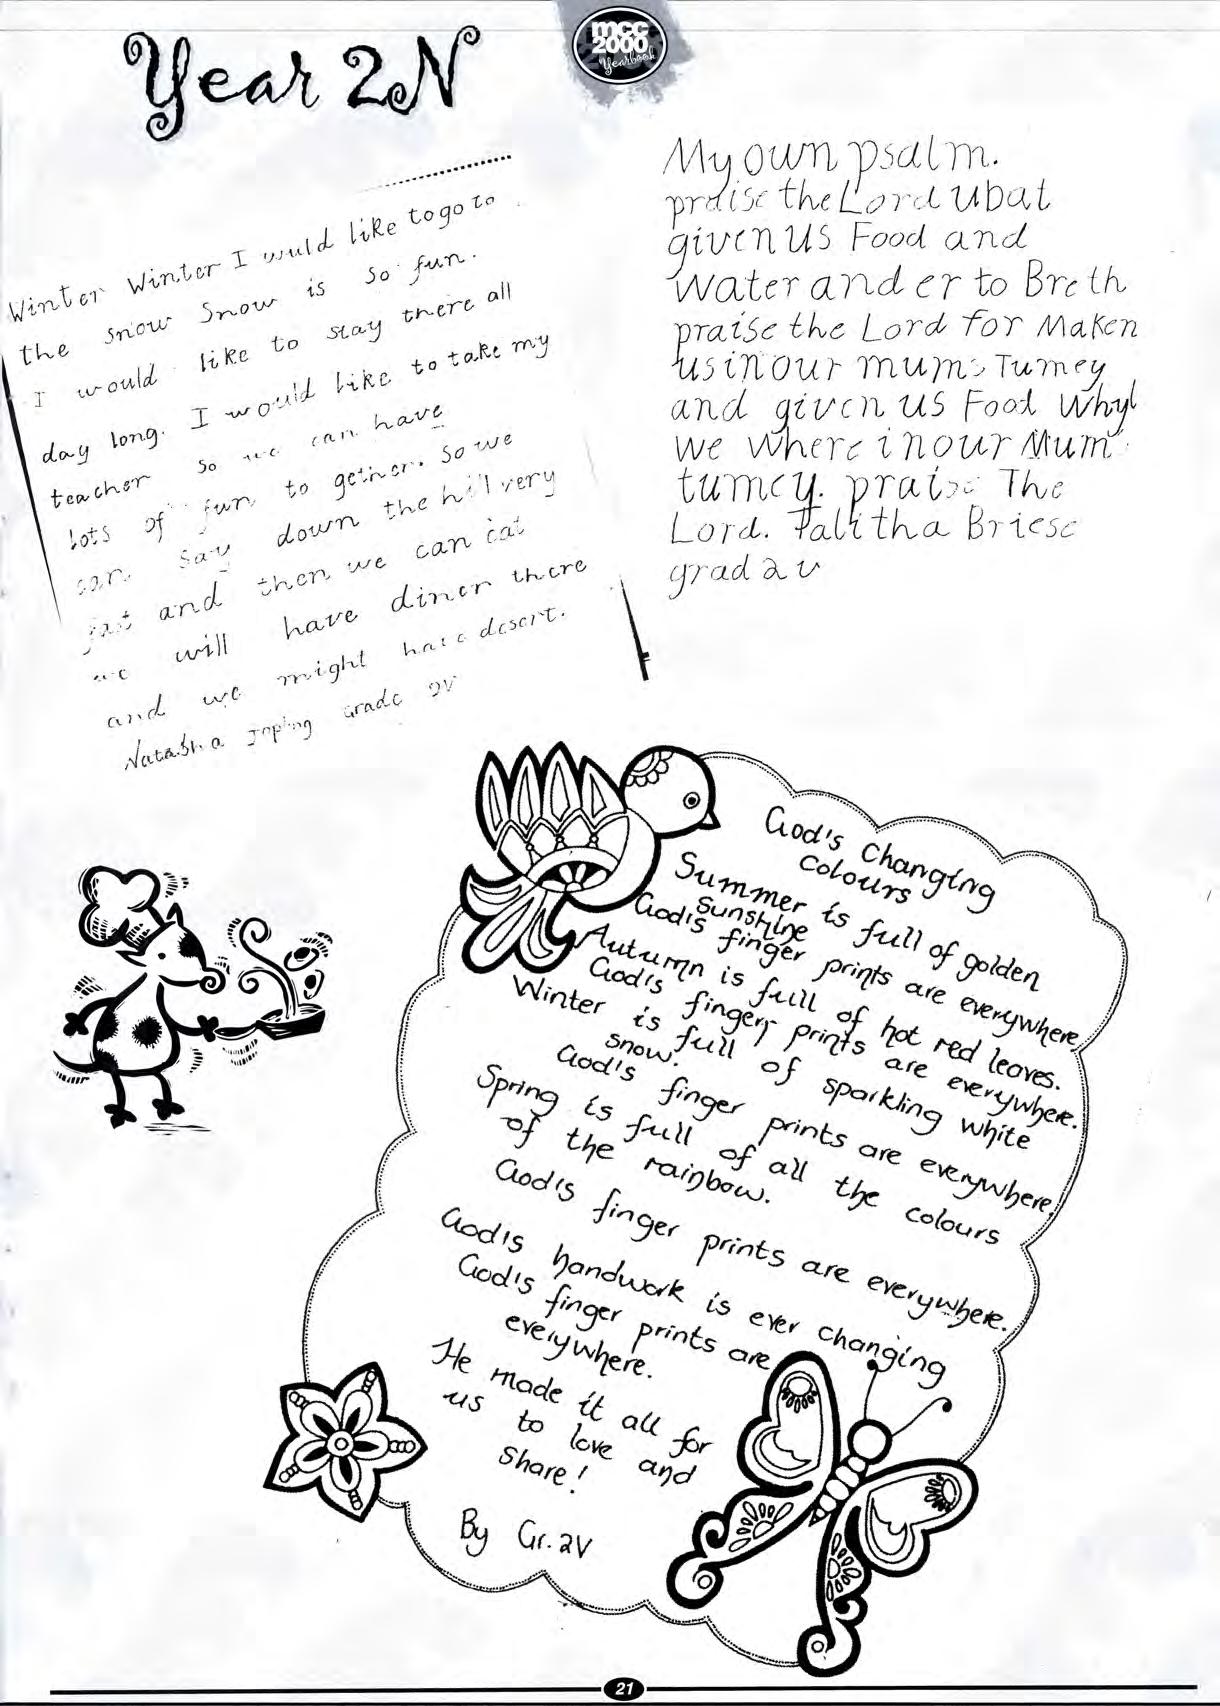 mcc
2000
Yearbook
Year 2N
Winter Winter I would like to go to
the snow Snow is so fun.
I would like to stay there all
day long. I would like to take my
teacher so we can have
lots of fun to gether. So we
can say down the hill very
fast and then we can eat
we will have diner there
and we might have desert.
Natasha Grade 2V
My own psalm.
praise the Lord
given us Food and
Water and er to Breth
praise the Lord for Maken
us in our mums Tumey
and given us Food Whyl
we where in our Mum
tumey. praise The
Lord. Talitha Briese
grad 2 v
God's Changing
Colours
Summer is full of golden
Sunshine
God's finger prints are everywhere
Autumn is full of hot red leaves.
God's fingers prints are everywhere.
Winter is full of sparkling white
snow.
God's finger prints are everywhere.
Spring is full of all the colours
of the rainbow.
God's finger prints are everywhere.
God's handwork is ever changing
God's finger prints are
everywhere.
He made it all for
us to love and
share!
By Gr. 2V
21